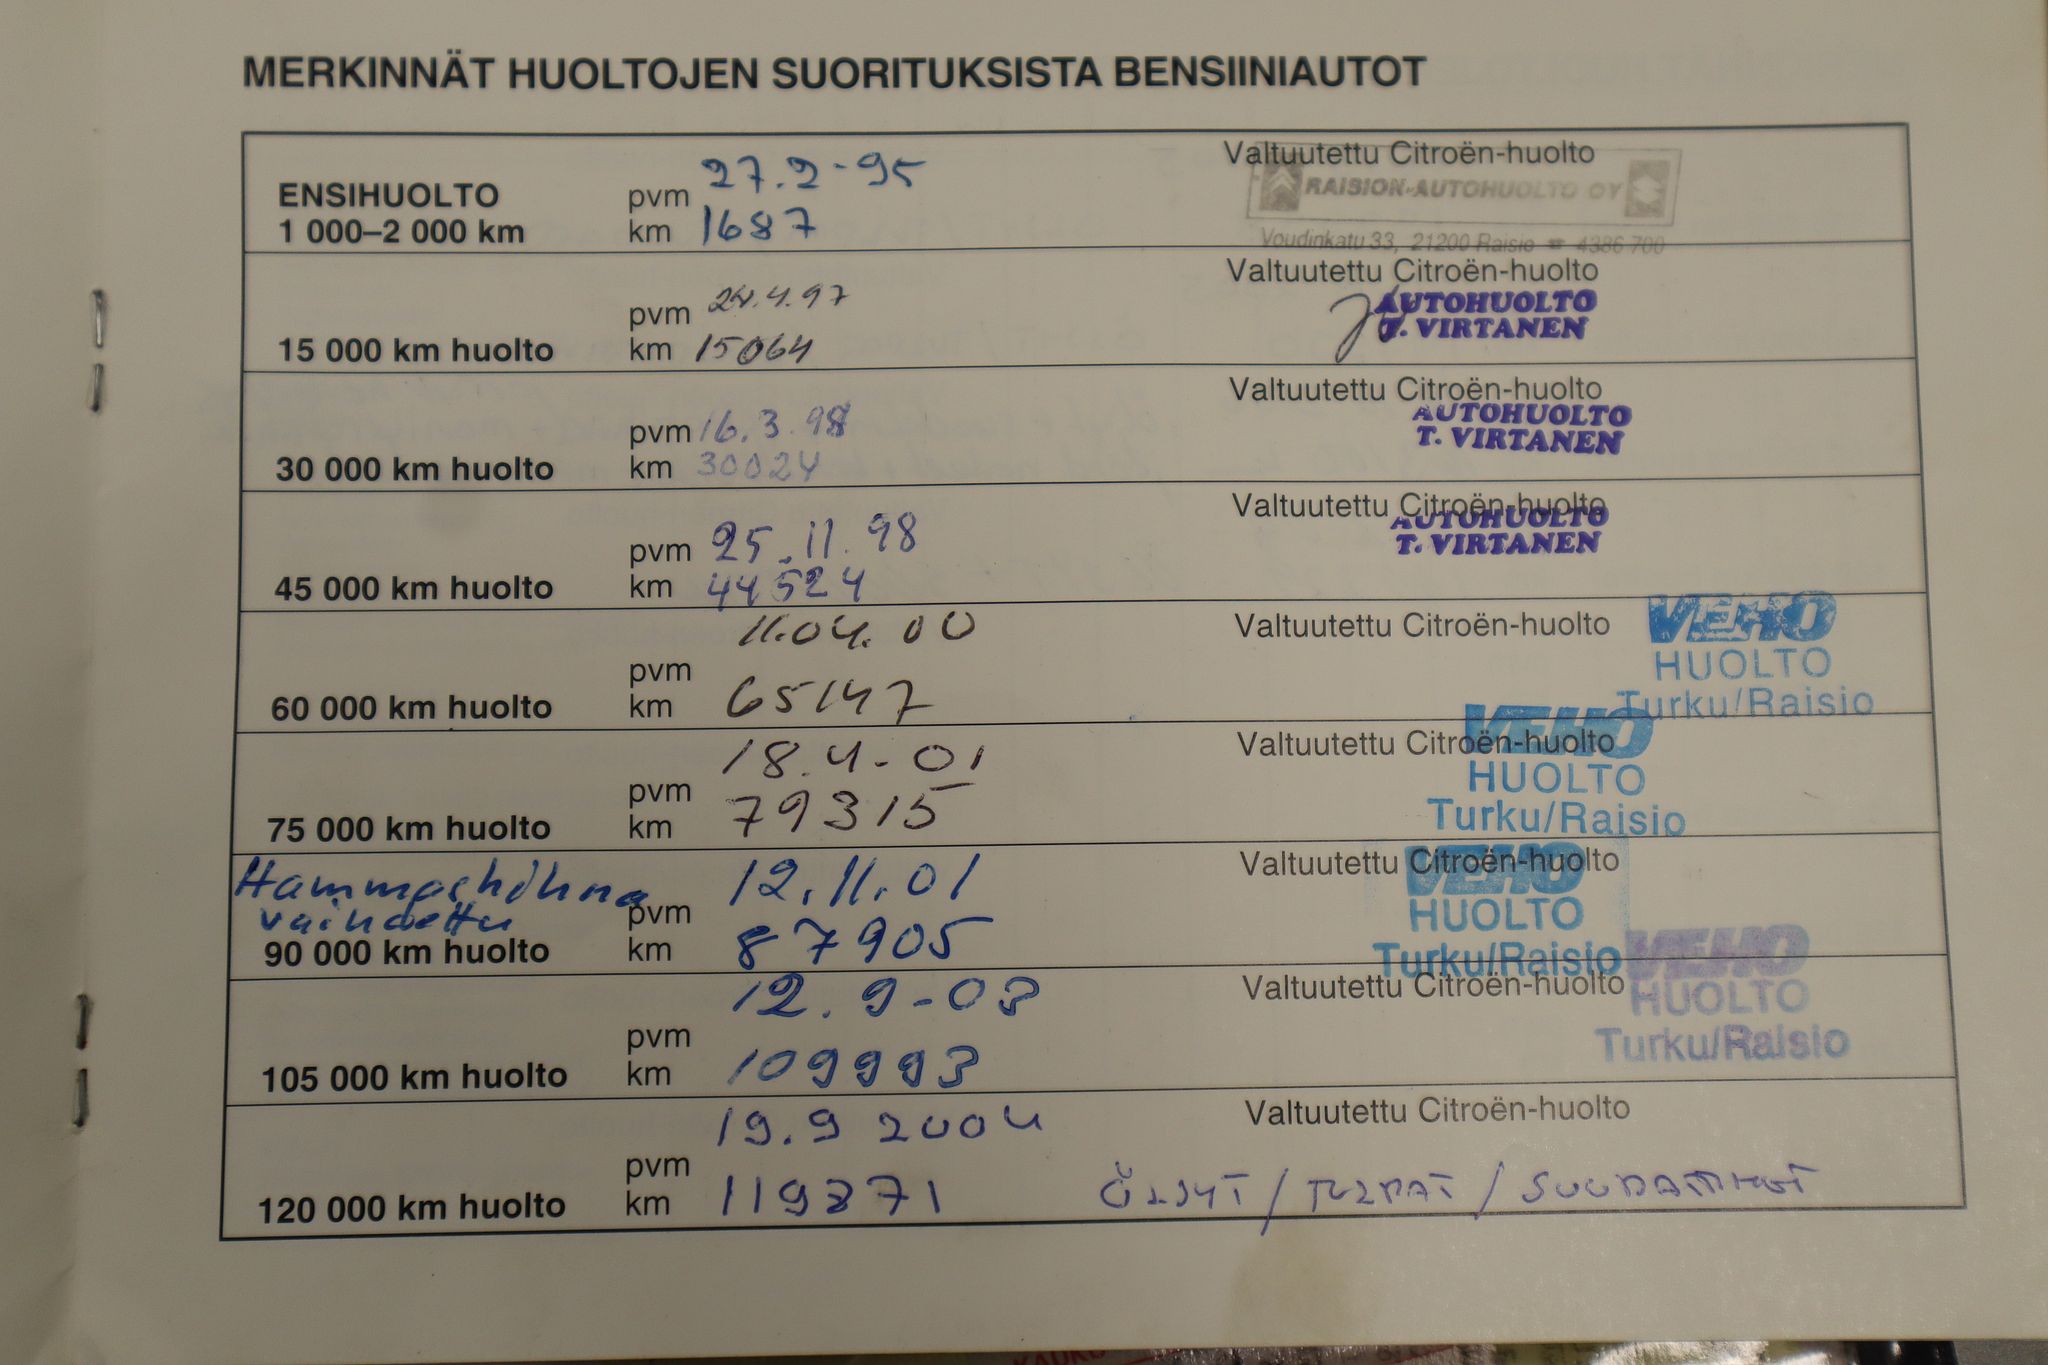 MERKINNÄT HUOLTOJEN SUORITUKSISTA BENSIINIAUTOT
ENSIHUOLTO
1 000–2 000 km
pvm 27.2-95
km 1687
Valtuutettu Citroën-huolto
RAISION AUTOHUOLTO OY
Voudinkatu 33, 21200 Raisio ☎ 4386 700
15 000 km huolto
pvm 24.4.97
km 15064
Valtuutettu Citroën-huolto
AUTOHUOLTO
T. VIRTANEN
30 000 km huolto
pvm 16.3.98
km 30024
Valtuutettu Citroën-huolto
AUTOHUOLTO
T. VIRTANEN
45 000 km huolto
pvm 25.11.98
km 44524
Valtuutettu Citroën-huolto
AUTOHUOLTO
T. VIRTANEN
60 000 km huolto
pvm 11.04.00
km 65147
Valtuutettu Citroën-huolto
VEHO
HUOLTO
Turku/Raisio
75 000 km huolto
pvm 18.4-01
km 79315
Valtuutettu Citroën-huolto
VEHO
HUOLTO
Turku/Raisio
Hammashihna
vaihdettu
90 000 km huolto
pvm 12.11.01
km 87905
Valtuutettu Citroën-huolto
VEHO
HUOLTO
Turku/Raisio
105 000 km huolto
pvm 12.9-03
km 109993
Valtuutettu Citroën-huolto
VEHO
HUOLTO
Turku/Raisio
120 000 km huolto
pvm 19.9 2004
km 119871
Valtuutettu Citroën-huolto
ÖLJYT / TULPAT /